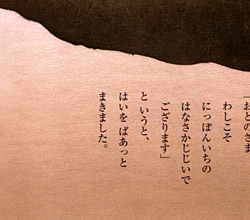 「おとのさま
わしこそ
にっぽんいちの
はなさかじじいで
ござります」
というと、
はいを ぱあっと
まきました。